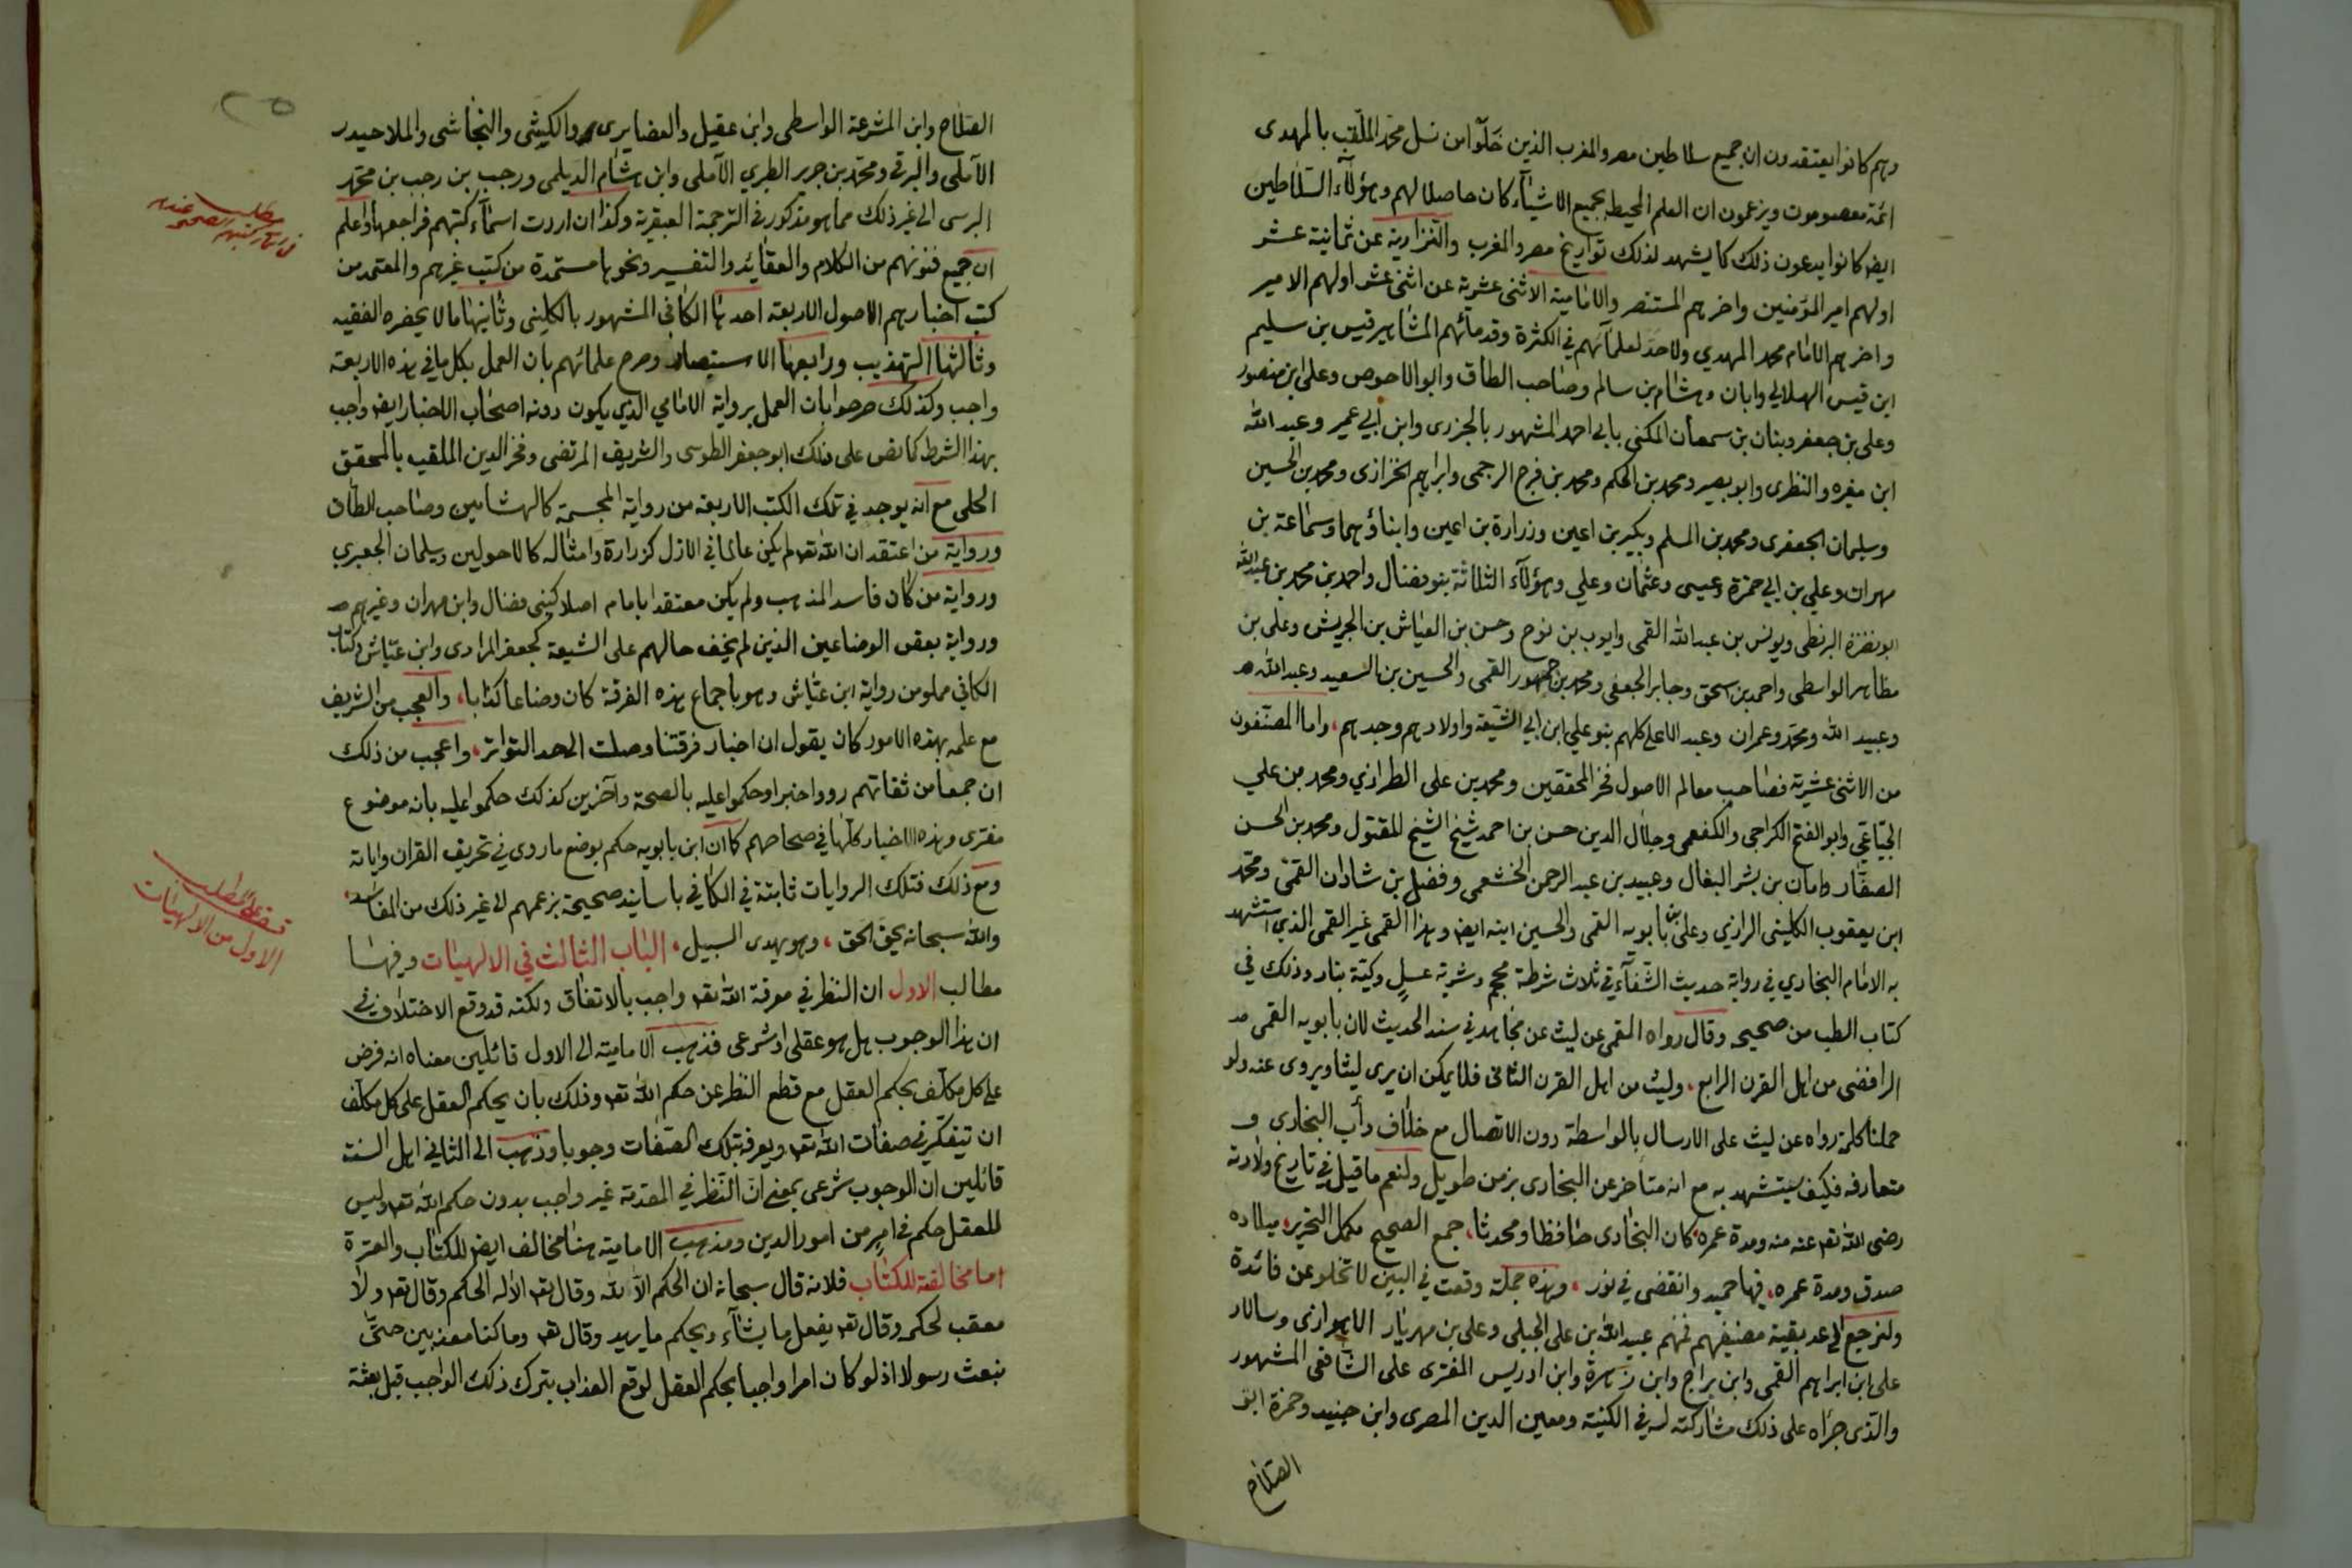 وهم كانوا يعتقدون ان جميع سلاطين مصر والمغرب الذين خَلَوا من نسل محمد الملقب بالمهدى
ائمة معصومون ويزعمون ان العلم المحيط بجميع الاشيآء كان حاصلا لهم وهؤلآء السّلاطين
ايض كانوا يدعون ذلك كما يشهد لذلك تواريخ مصر والمغرب والنزارية عن ثمانية عشر
اولهم امير المؤمنين واخرهم المستنصر والامامية الاثنى عشرية عن اثنى عشر اولهم الامير
واخرهم الامام محمد المهدي ولاحد لعلمآئهم في الكثرة وقدمائهم المشاهير قيس بن سليم
ابن قيس الهلالي وابان وهشام بن سالم وصاحب الطاق وابوالاحوص وعلى ابن منصور
وعلى بن جعفر وبنان بن سمعان المكنى بابي احمد المشهور بالجزرى وابن ابي عمير وعبد الله
ابن مغيره والنظرى وابو بصير ومحمد بن الحكم ومحمد بن فرج الرجمى وابراهيم الخزازى ومحمد بن الحسين
وسليمان الجعفرى ومحمد بن المسلم وبكير بن اعين وزرارة بن اعين وابناؤهما وسماعة بن
مهران وعلي بن ابي حمزة وعيسى وعثمان وعلي وهؤلآء الثلاثة بنو فضال واحمد بن محمد بن عبد الله
ابو نضرة البرنطى ويونس بن عبد الله القمى وايوب بن نوح وحسن بن العياش بن الجريش وعلى بن
مظاهر الواسطى واحمد بن اسحق وجابر الجعفى ومحمد بن جمهور القمى والحسين بن السعيد وعبد الله
وعبيد الله ومحمد وعمران وعبد الاعلى كلهم بنو علي ابن ابي الشيعة واولادهم وجدهم، واما المصنّفون
من الاثنى عشرية فصاحب معالم الاصول فخر المحققين ومحمد بن على الطرازي ومحمد من علي
الجبّاعي وابو الفتح الكراجى والكفعمى وجلال الدين حسن بن احمد شيخ الشيخ المقتول ومحمد بن الحسن
الصفّار وابان بن بشر البغال وعبيد بن عبد الرحمن الخشعمى وفضل بن شادان القمى ومحمد
ابن يعقوب الكلينى الرازي وعلى بن بابويه القمى والحسين ابنه ايض وهذا القمى غير القمى الذي استشهد
به الامام البخاري في رواية حديث الشفآء في ثلاث شرطة محجم وشربة عسل وكية بنار وذلك في
كتاب الطب من صحيحه وقال رواه القمى عن ليث عن مجاهد في سند الحديث لان بابويه القمى
الرافضى من اهل القرن الرابع، وليث من اهل القرن الثانى فلا يمكن ان يرى ليثا ويروى عنه ولو
حملنا كلمة رواه عن ليث على الارسال بالواسطة دون الاتصال مع خلاف دأب البخارى و
متعارفه فكيف يستشهد به مع انه متأخر عن البخارى بزمن طويل ولنعم ما قيل في تاريخ ولادته
رضى الله تعه عنه ومدة عمره، كان البخارى حافظا ومحدثا، جمع الصحيح مكمل التحرير، ميلاده
صدق ومدة عمره، فيها حميد وانقضى في نور، وهذه جملة وقعت في البين لا تخلو عن فائدة
ولنرجع الى عد بقية مصنفيهم فمنهم عبيد الله بن على الحبلى وعلى بن مهريار الاهوازى وسالار
على ابن ابراهيم القمى وابن براج وابن زهرة وابن ادريس المفترى على الشافعى المشهور
والذى جرّاه على ذلك مشاركته له في الكنية ومعين الدين المصرى وابن جنيد وحمزة ابو
الصلاح
٢٥
الصلاح وابن المشرعة الواسطى وابن عقيل والغضايرى والكيشى والنجاشى والملا حيدر
الآملى والبرقى ومحمد بن جرير الطبري الآملى وابن هشام الديلمى ورجب بن رجب بن محمد
البرسى الى غير ذلك مما هو مذكور في الترجمة العبقرية وكذا ان اردت اسمآء كتبهم فراجعها واعلم
ان جميع فنونهم من الكلام والعقايد والتفسير ونحوها مستمدة من كتب غيرهم والمعتمد من
كتب اخبارهم الاصول الاربعة احدها الكافى المشهور بالكلينى وثانيها ما لا يحضره الفقيه
وثالثها التهذيب ورابعها الاستبصار وصرح علمائهم بان العمل بكل ما في هذه الاربعة
واجب وكذلك صرحوا بان العمل برواية الامامي الذي يكون دونه اصحاب الاخبار ايض واجب
بهذا الشرط كما نص على ذلك ابو جعفر الطوسى والشريف المرتضى وفخر الدين الملقب بالمحقق
الحلى مع انه يوجد في تلك الكتب الاربعة من رواية المجسمة كالهشامين وصاحب الطاق
ورواية من اعتقد ان الله تعه لم يكن عالما في الازل كزرارة وامثاله كالاحولين وسليمان الجعبري
ورواية من كان فاسد المذهب ولم يكن معتقدا بامام اصلا كبنى فضال وابن مهران وغيرهم
ورواية بعض الوضاعين الذين لم يخف حالهم على الشيعة كجعفر المرادى وابن عيّاش وكتاب
الكافي مملو من رواية ابن عيّاش وهو باجماع هذه الفرقة كان وضاعا كذابا، والعجب من الشريف
مع علمه بهذه الامور كان يقول ان اخبار فرقتنا وصلت الى حد التواتر، واعجب من ذلك
ان جمعا من ثقاتهم رووا خبرا وحكموا عليه بالصحة وآخرين كذلك حكموا عليه بانه موضوع
مفترى وهذه الاخبار كلها في صحاحهم كما ان ابن بابويه حكم بوضع ما روى في تحريف القران واياته
ومع ذلك فتلك الروايات ثابتة في الكافي باسانيد صحيحة بزعمهم الى غير ذلك من المفاسد،
والله سبحانه يحق الحق، وهو يهدى السبيل، الباب الثالث في الالهيات وفيها
مطالب الاول ان النظر في معرفة الله تعه واجب بالاتفاق ولكنه قد وقع الاختلاف في
ان هذا الوجوب هل هو عقلى او شرعى فذهب الامامية الى الاول قائلين معناه انه فرض
على كل مكلف بحكم العقل مع قطع النظر عن حكم الله تعه وذلك بان يحكم العقل على كل مكلف
ان يتفكر في صفات الله تعه ويعرفه بتلك الصّفات وجوبا وذهب الى الثاني اهل السنة
قائلين ان الوجوب شرعى بمعنى ان النظر في المقدمة غير واجب بدون حكم الله تعه وليس
للعقل حكم في امر من امور الدين ومذهب الامامية هنا مخالف ايض للكتاب والعترة
اما مخالفة للكتاب فلانه قال سبحانه ان الحكم الا لله وقال تعه الا له الحكم وقال تعه ولا
معقب لحكمه وقال تعه يفعل ما يشآء ويحكم ما يريد وقال تعه وما كنا معذبين حتّى
نبعث رسولا اذ لو كان امرا واجبا بحكم العقل لوقع العذاب بترك ذلك الواجب قبل بعثة
مطلب
الاول من الالهيات